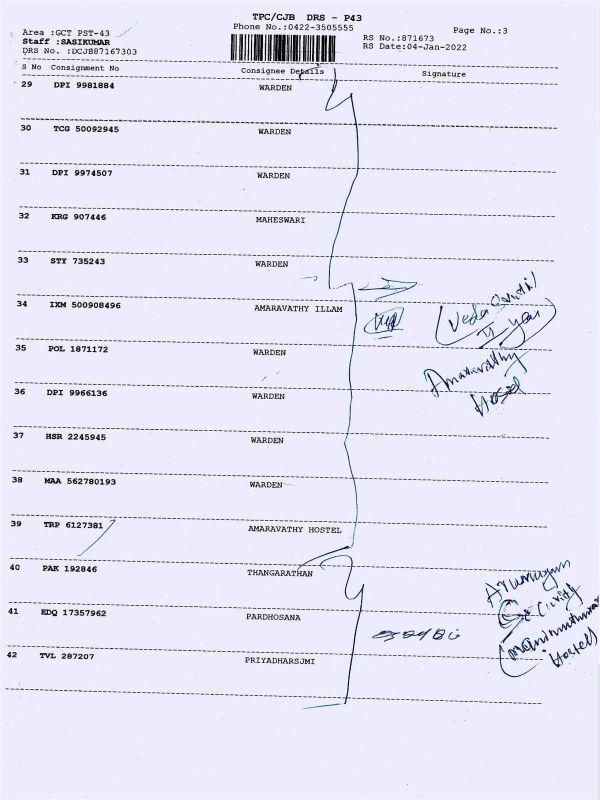 TPC/CJB DRS - P43
Area :GCT PST-43
Phone No.:0422-3505555
Page No.:3
Staff :SASIKUMAR
RS No.:871673
DRS No. :DCJB87167303
RS Date:04-Jan-2022
S No Consignment No Consignee Details Signature
29 DPI 9981884 WARDEN
30 TCG 50092945 WARDEN
31 DPI 9974507 WARDEN
32 KRG 907446 MAHESWARI
33 STY 735243 WARDEN
34 IXM 500908496 AMARAVATHY ILLAM
Veda
II year
Amaravathy
Hostel
35 POL 1871172 WARDEN
36 DPI 9966136 WARDEN
37 HSR 2245945 WARDEN
38 MAA 562780193 WARDEN
39 TRP 6127381 AMARAVATHY HOSTEL
40 PAK 192846 THANGARATHAN
Arumugam
Security
Hostel
41 EDQ 17357962 PARDHOSANA
42 TVL 287207 PRIYADHARSJMI